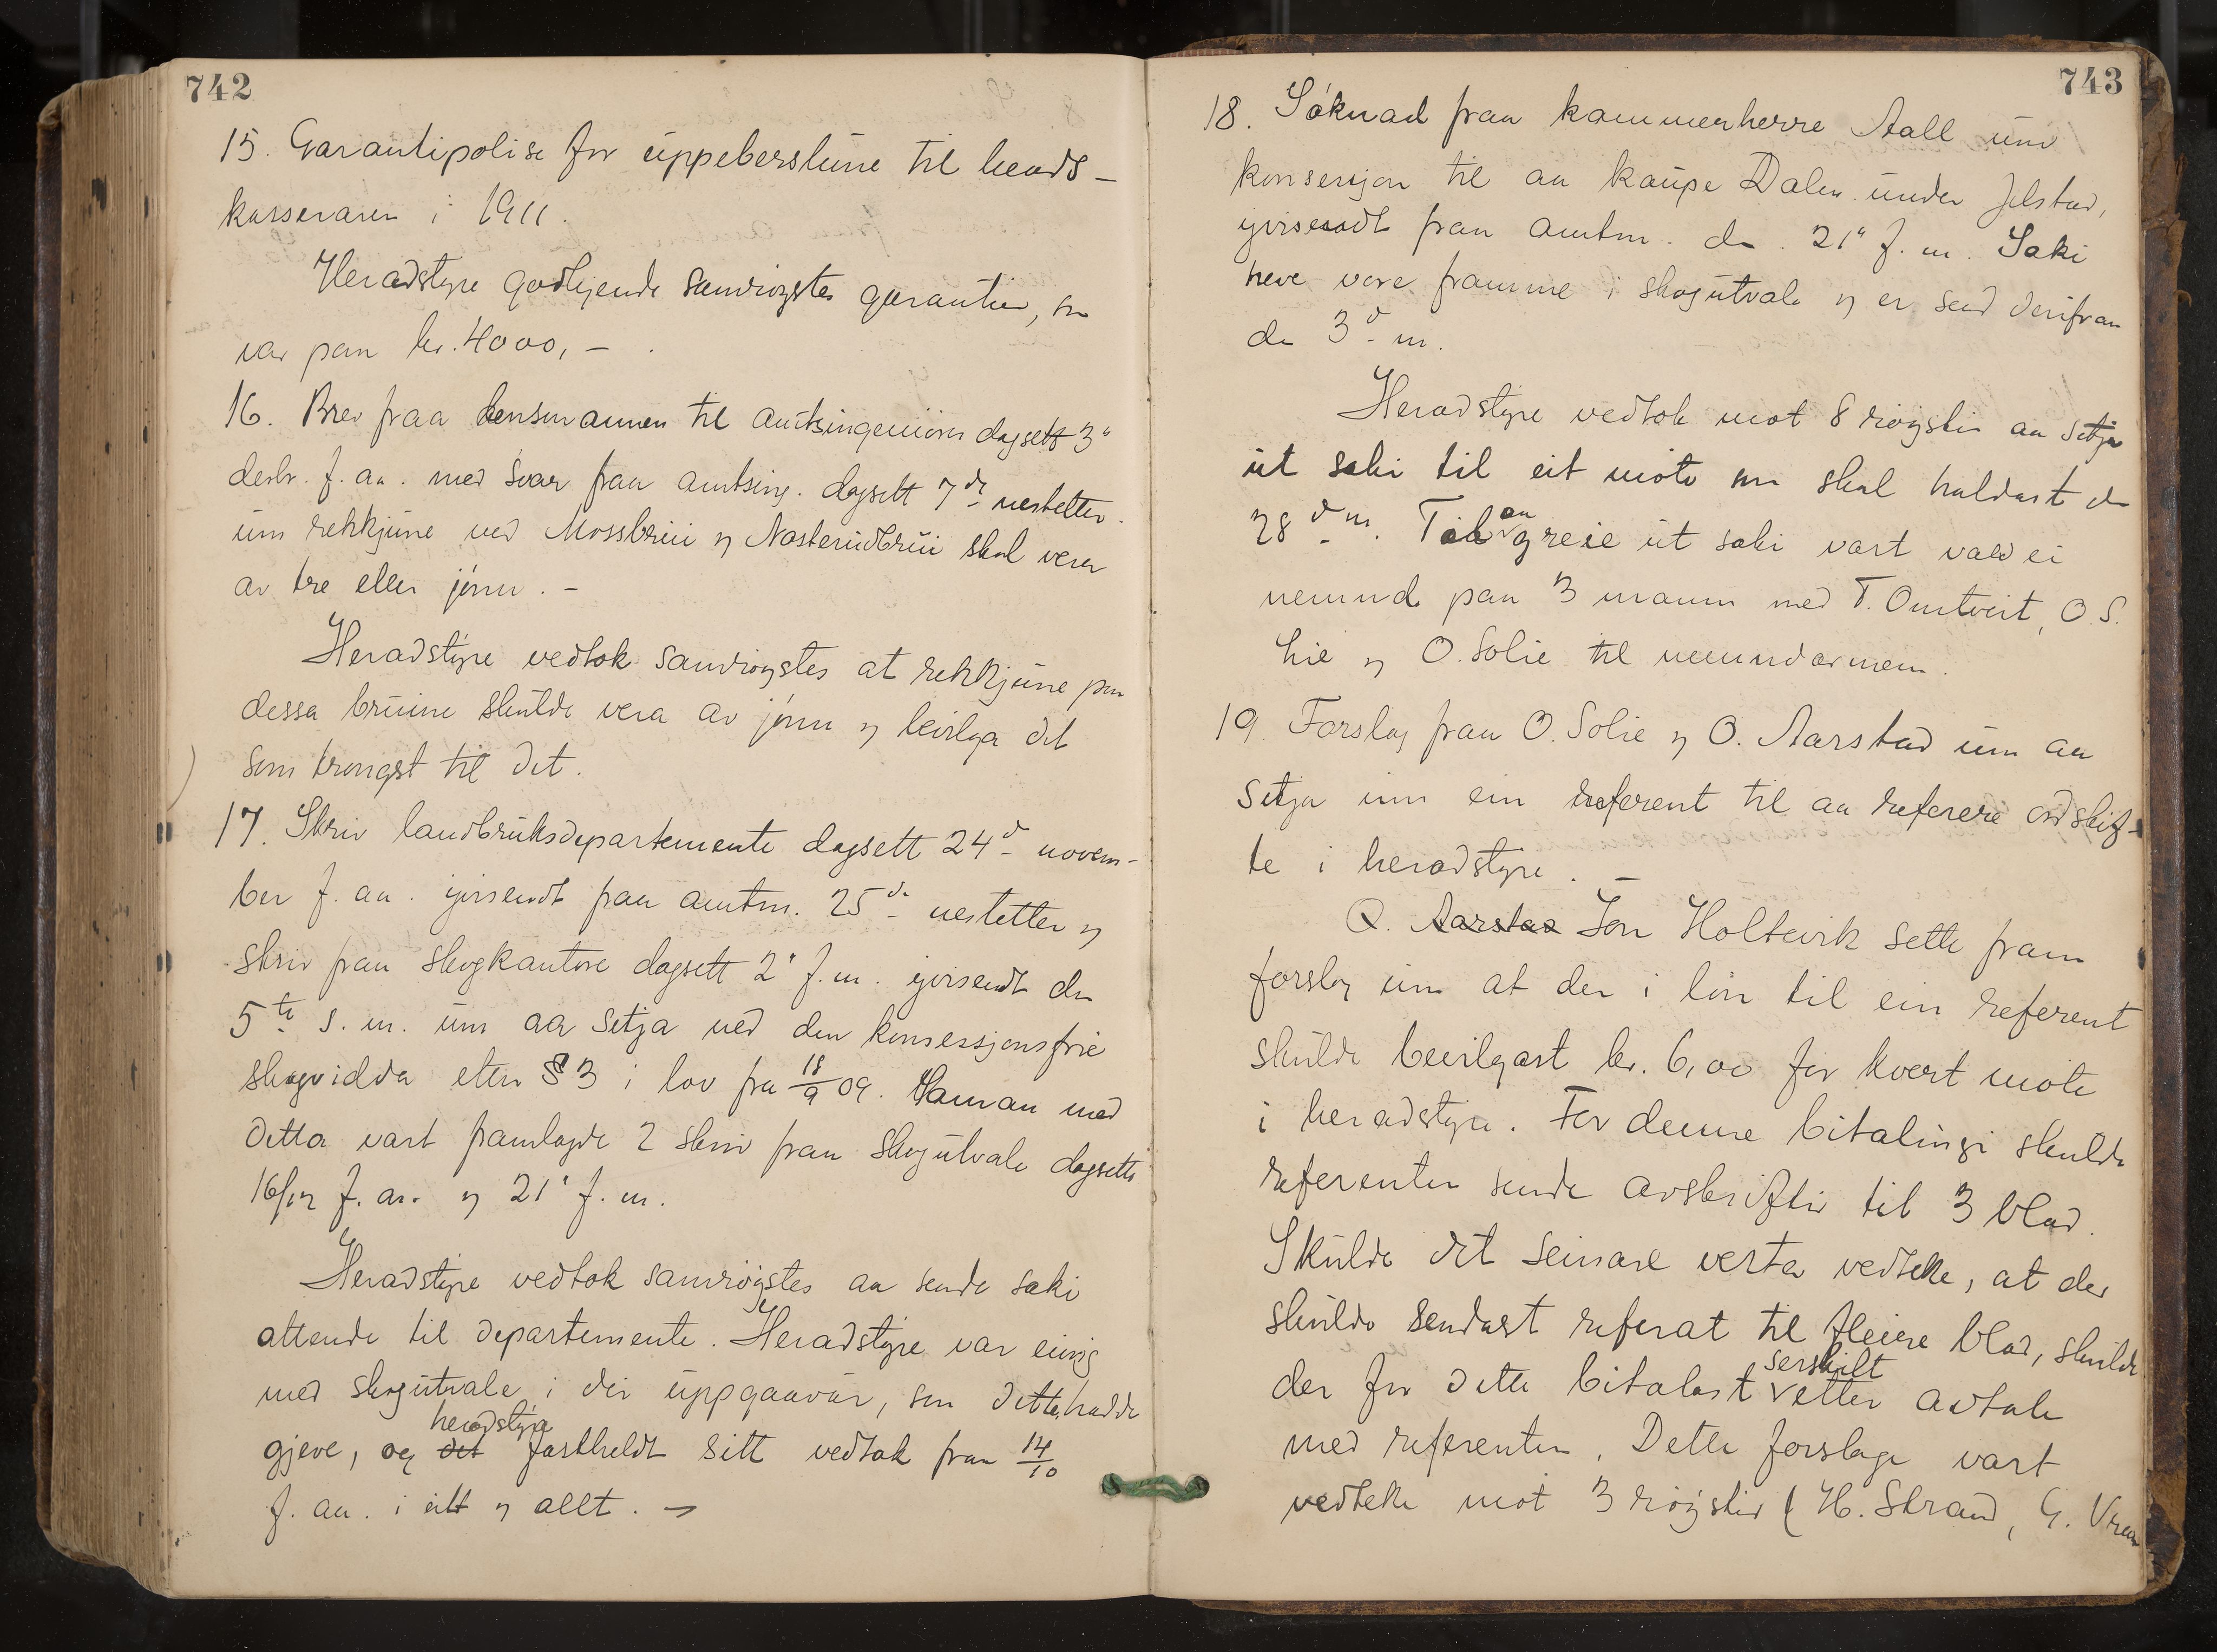 742
15. Garantipolise for uppeberslune til heads-
kasseraren i 1911.
Heradstyre godkjende samrøystes garantien, som
var paa kr. 4000,-.
16. Brev fraa lensmannen til amtsingeniøren dagsett 3"
desbr. f. aa. med svar fraa amtsing. dagsett 7de nestetter
um rekkjune ved Mossbrui og Nasterudbrui skal vera
av tre eller jønn. -
Heradstyre vedtok samrøystes at rekkjune paa
dessa bruine skulde vera av jønn og beivlga det
som trengst til det.
17. Skriv landbruksdepartemente dagsett 24d novem-
ber f. aa. yvisendt fraa amtm. 25de nestetter og
skriv fraa skogkantore dagsett 2" f. m. yvisendt den
5te s. m. um aa setja ned den konsessjonsfrie
skogvidda etter § 3 i lov fra 18/9 09. Saman med
detta vart framlagde 2 skriv fraa skogutvale dagsette
16/12 f. aa. og 21" f. m.
Heradstyre vedtok samrøystes aa senda saki
attende til departemente. Heradstyre var einig
med skogutvale i dei uppgaavur, som dette hadde
heradstyre
gjeve, og det fastheldt sitt vedtak fraa 14/10
f. aa. i eitt og allt. -
743
18. Søknad fraa kammerherre Aall um
konsesjon til aa kaupe Dalen under Jelstad,
yvisendt fraa amtm. den 21" f. m. Saki
heve vore framme i skogutvale og er send derifraa
den 3d m.
Heradstyre vedtok mot 8 røyster aa setja
ut saki til eit møte som skal haldast den
28d m. Til aa greie ut saki vart vald ei
nemnd paa 3 mann med T. Omtveit, O. S.
Lie og O. Solie til nemndarmenn.
19. Forslag fraa O. Solie og O. Aarstad um aa
setja inn ein referent til aa referere ordskif-
te i heradstyre. -
O. Aarstad Jon Holtevik sette fram
forslag um at der i løn til ein referent
skulde beivlgast kr. 6,00 for kvert møte
i heradstyre. For denne bitalingi skulde
referenten sende avskrifter til 3 blad.
Skulde det seinare verta vedteke, at der
skulde sendast referat til fleire blad, skulde
serskilt
der for dette bitalast etter avtale
med referenten. Dette forslage vart
vedteke mot 3 røyster (H. Strand, G. Vraa